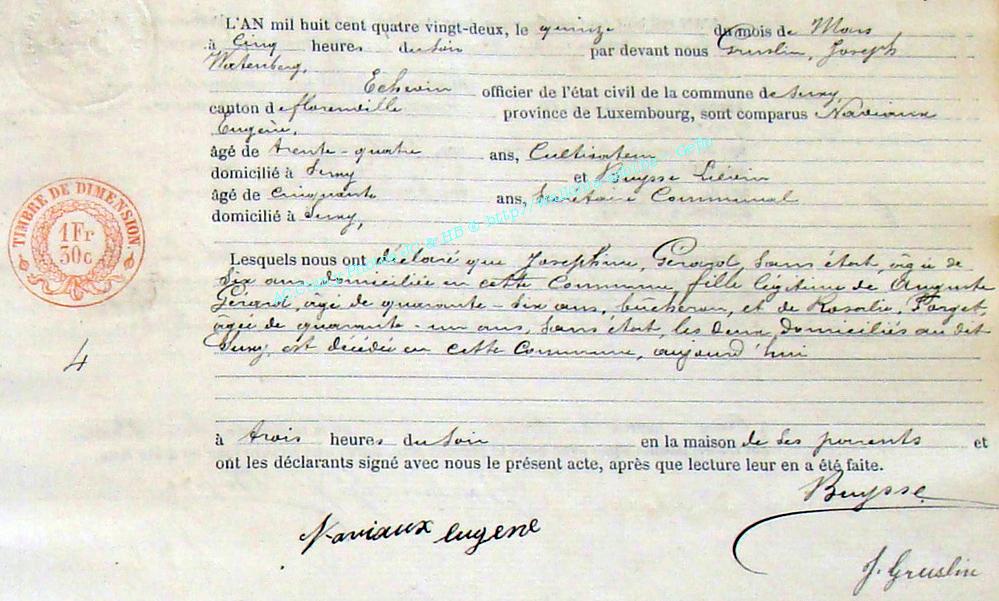 L'AN mil huit cent quatre vingt-deux, le quinze du mois de Mars
à Cinq heures du soir par devant nous Gruslin, Joseph
Echevin officier de l'état civil de la commune de Suxy,
canton de florenville province de Luxembourg, sont comparus Naviaux
Eugène,
âgé de trente-quatre ans, Cultivateur
domicilié à Suxy et Buysse Liévin
âgé de cinquante ans, Secrétaire Communal
domicilié à Suxy,
TIMBRE DE DIMENSION.
1Fr
30c
Lesquels nous ont déclaré que Joséphine, Gérard, sans état, âgée de
six ans, domiciliée en cette Commune, fille légitime de Auguste
Gérard, âgé de quarante-six ans, bûcheron, et de Rosalie, Forget,
âgée de quarante-un ans, sans état, les deux domiciliés au dit
Suxy, est décédée en cette Commune, aujourd'hui
4
à trois heures du soir en la maison de ses parents et
ont les déclarants signé avec nous le présent acte, après que lecture leur en a été faite.
Buysse
Naviaux eugene
J. Gruslin